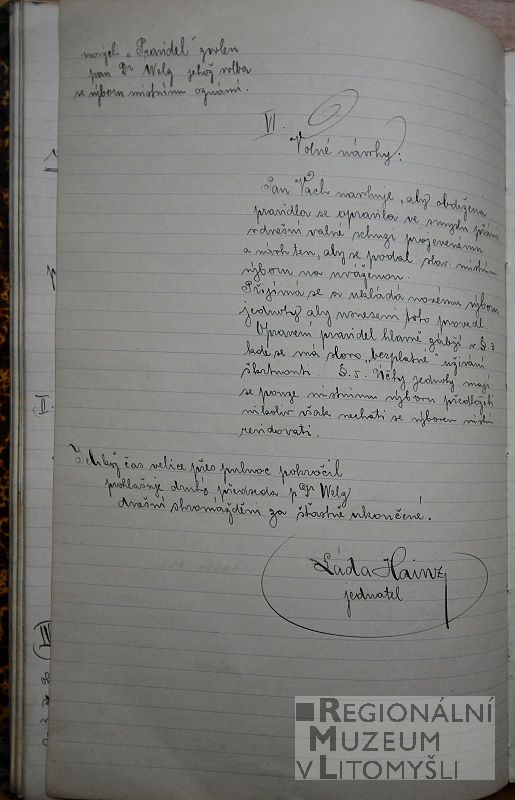 nových „Pravidel" zvolen
pan Dr Welz jehož volba
se výboru místnímu oznámí.
VI.
Volné návrhy:
Pan Vach navrhuje, aby obdržená
pravidla se opravila ve smyslu přání
v dnešní valné schuzi projevenému
a návrh ten, aby se podal slav. místním
výboru na uváženou.
Přijímá se a ukládá novému výboru
jednoty aby usnesení toto provedl
Opravení pravidel hlavně v §. 3
kde se má slovo „bezplatné" užívání
§. 5. Účty jednoty mají
se pouze místnímu výboru předložiti
nikoliv však nechati se výborem místní
revidovati.
čas velice přes pulnoc pokročil
prohlašuje druhý předseda p Dr Welz
dnešní shromáždění za šťastně ukončené.
Láďa Hainz
jednatel
II.
III
REGIONÁLNÍ
MUZEUM
V LITOMYŠLI